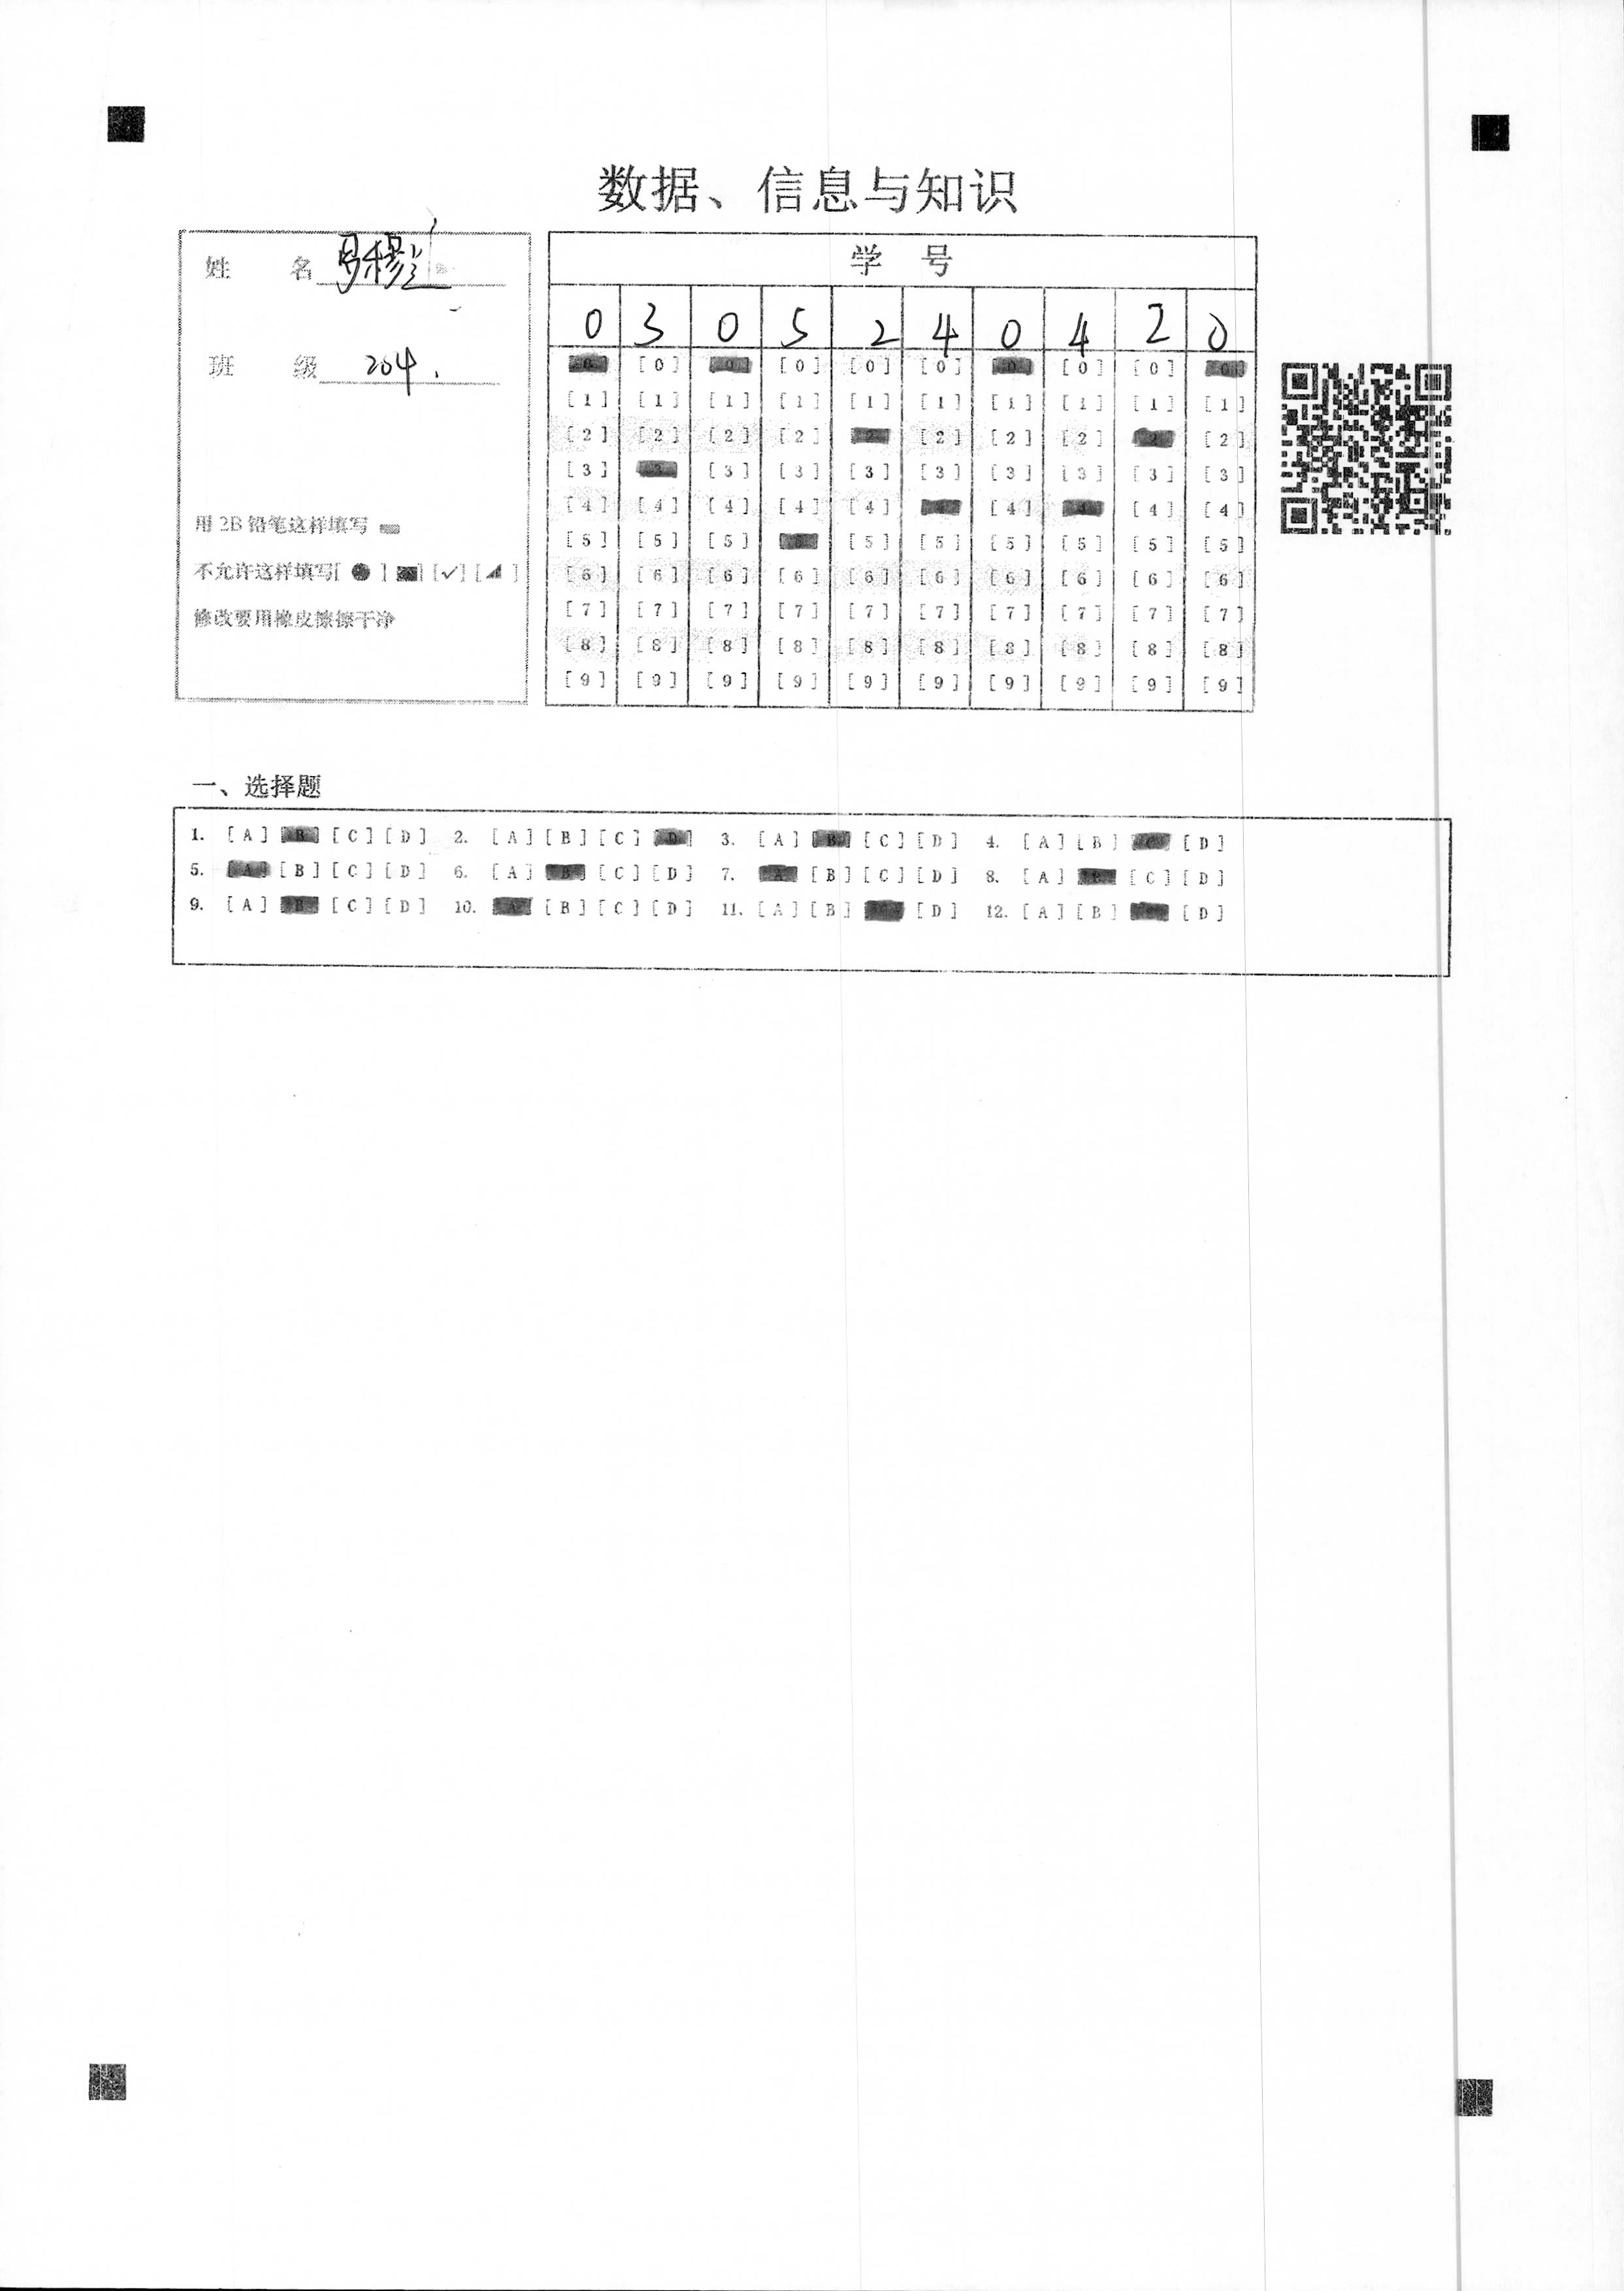 数据、信息与知识
姓 名
班 级 204.
用 2B 铅笔这样填写
不允许这样填写[ ● ] [■] [✓] [◢ ]
修改要用橡皮擦擦干净
学 号
0 3 0 5 2 4 0 4 2 0
[0] [0] [0] [0] [0] [0] [0] [0] [0] [0]
[1] [1] [1] [1] [1] [1] [1] [1] [1] [1]
[2] [2] [2] [2] [2] [2] [2] [2] [2] [2]
[3] [3] [3] [3] [3] [3] [3] [3] [3] [3]
[4] [4] [4] [4] [4] [4] [4] [4] [4] [4]
[5] [5] [5] [5] [5] [5] [5] [5] [5] [5]
[6] [6] [6] [6] [6] [6] [6] [6] [6] [6]
[7] [7] [7] [7] [7] [7] [7] [7] [7] [7]
[8] [8] [8] [8] [8] [8] [8] [8] [8] [8]
[9] [9] [9] [9] [9] [9] [9] [9] [9] [9]
一、选择题
1. [A] [B] [C] [D] 2. [A] [B] [C] [D] 3. [A] [B] [C] [D] 4. [A] [B] [C] [D]
5. [A] [B] [C] [D] 6. [A] [B] [C] [D] 7. [A] [B] [C] [D] 8. [A] [B] [C] [D]
9. [A] [B] [C] [D] 10. [A] [B] [C] [D] 11. [A] [B] [C] [D] 12. [A] [B] [C] [D]